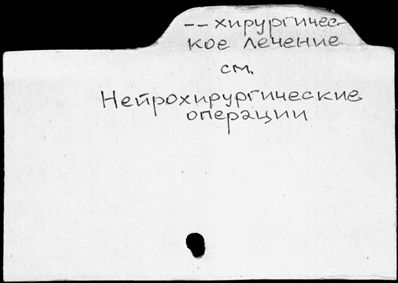 -- хирургичес-
кое лечение
см.
Нейрохирургические
операции